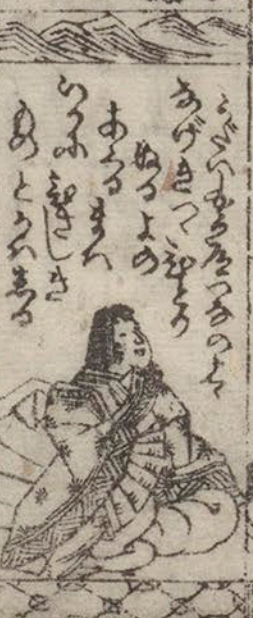 うだいせう道つなのはゝ
なげきつゝひとり
ぬるよの
あくるまは
いかにひさしき
ものとかはしる